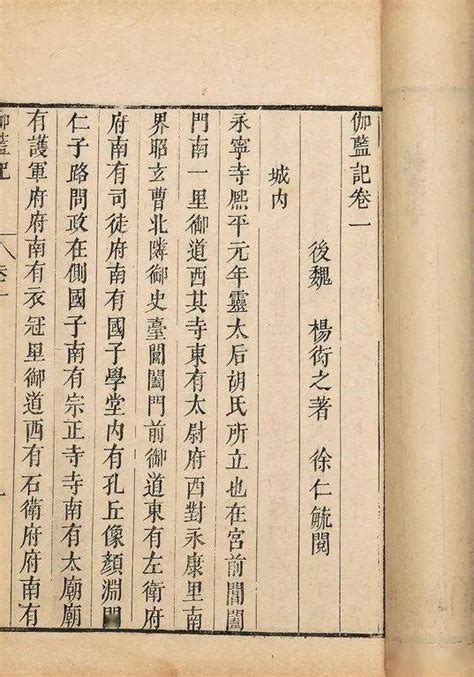 伽藍記卷一
後魏 楊衒之著 徐仁毓閱
城内
永寧寺熈平元年靈太后胡氏所立也在宮前閶闔
門南一里御道西其寺東有太尉府西對永康里南
界昭玄曹北隣御史臺閶闔門前御道東有左衛府
府南有司徒府南有國子學堂内有孔丘像顏淵問
仁子路問政在側國子南有宗正寺寺南有太廟廟
有護軍府府南有衣冠里御道西有石衛府府南有